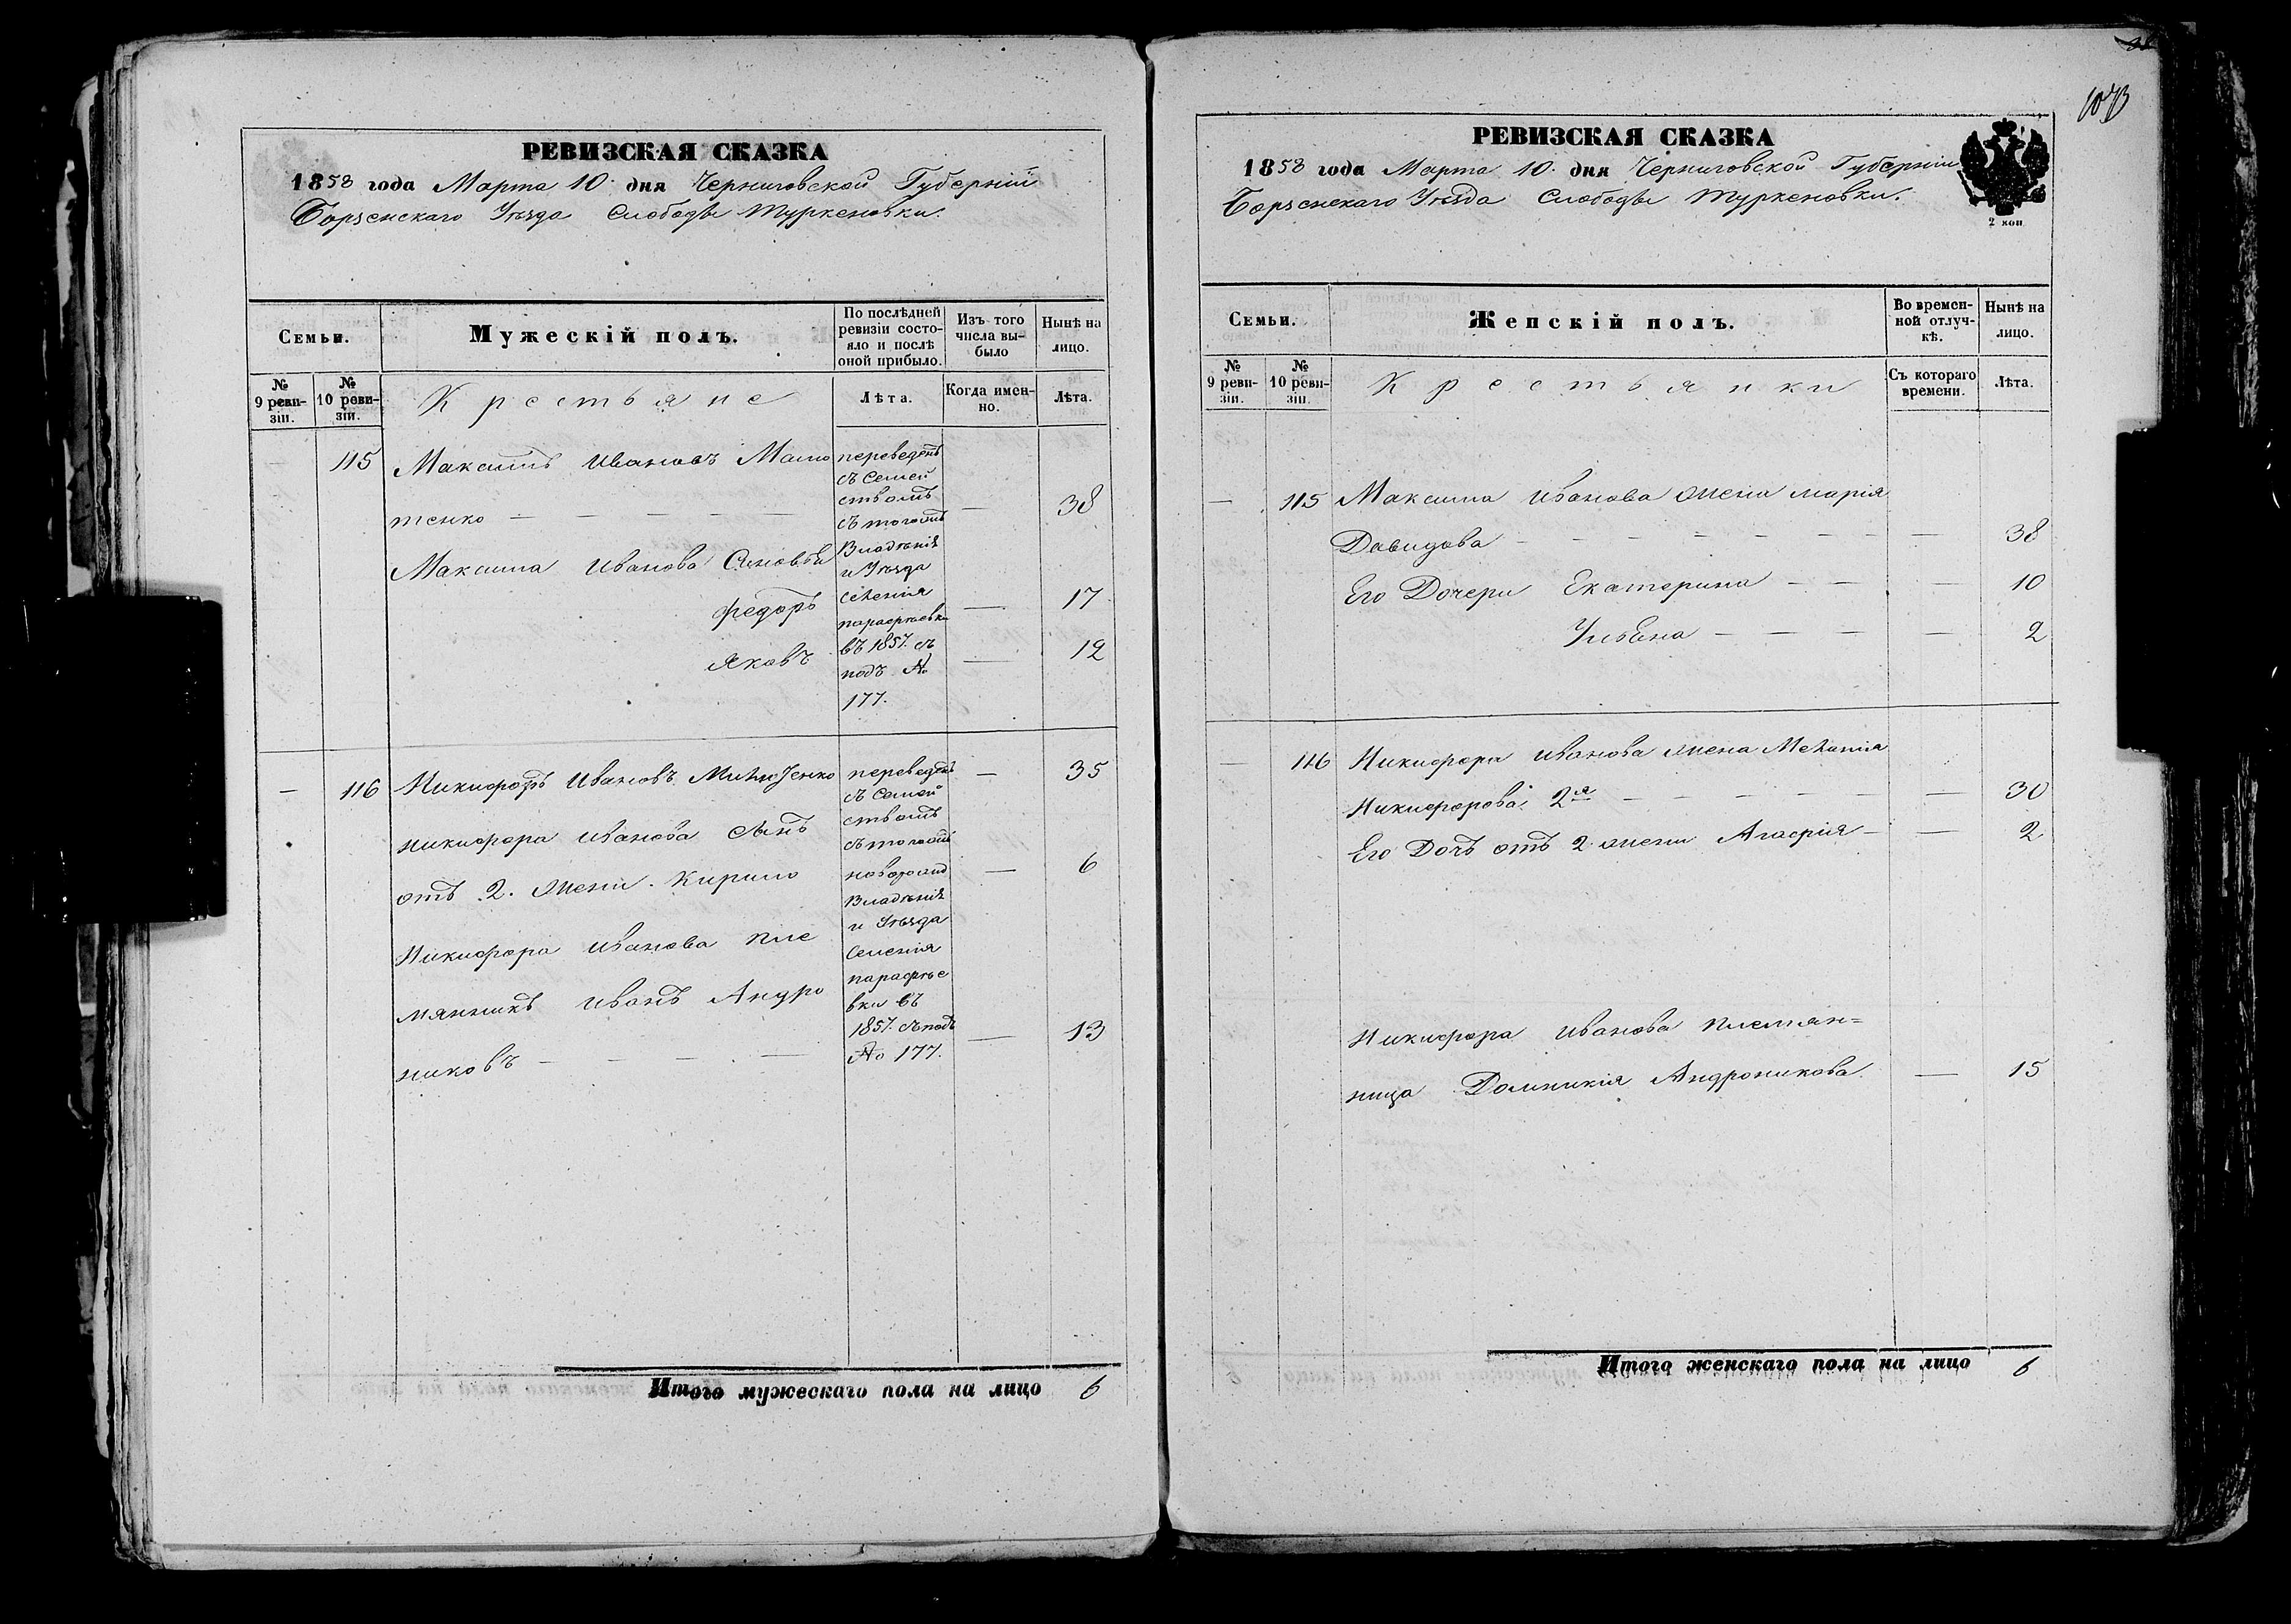 РЕВИЗСКАЯ СКАЗКА
1858 года Марта 10 дня Черниговской Губерніи
Борзенскаго Уѣзда Слободы Туркеновки.
Семьи.
Мужескій полъ.
По послѣдней ревизіи состояло и послѣ оной прибыло.
Изъ того числа выбыло
Нынѣ на лицо.
№ 9 ревизіи.
№ 10 ревизіи.
Крестьяне
Лѣта.
Когда именно.
Лѣта.
115 Максимъ Ивановъ
тенко — — — — — — 38
Максима Иванова Сыновья
Федоръ — 17
Яковъ — 12
переведенъ
съ Семей
ствомъ
съ тогожъ
Владѣнія
и Уѣзда
Селенія
парафѣевки
въ 1857. съ
подъ №
177.
— 116 Никифоръ Ивановъ — 35
Никифора Иванова Сынъ
отъ 2. жены. Кирило — 6
Никифора Иванова пле
мянникъ Иванъ Андро
никовъ — — — — — 13
переведенъ
съ Семей
ствомъ
съ тогожъ
Владѣнія
и Уѣзда
Селенія
парафѣе
вки въ
1857. съ подъ
№ 177.
Итого мужескаго пола на лицо 6
РЕВИЗСКАЯ СКАЗКА
1858 года Марта 10. дня Черниговской Губерніи
Борзенскаго Уѣзда Слободы Туркеновки.
2 коп
Семьи.
Женскій полъ.
Во временной отлучкѣ.
Нынѣ на лицо.
№ 9 ревизіи.
№ 10 ревизіи.
Крестьянки
Съ котораго времени.
Лѣта.
— 115 Максима Иванова жена марія
Давидова — — — — — — — — 38
Его Дочери Екатерина — — — 10
Ульяна — — — — 2
— 116 Никифора Иванова жена Меланія
Никифорова 2я — — — — — — 30
Его Дочь отъ 2 жены Агафія — — 2
Никифора Иванова племян=
ница Домникія Андроникова. — 15
Итого женскаго пола на лицо 6